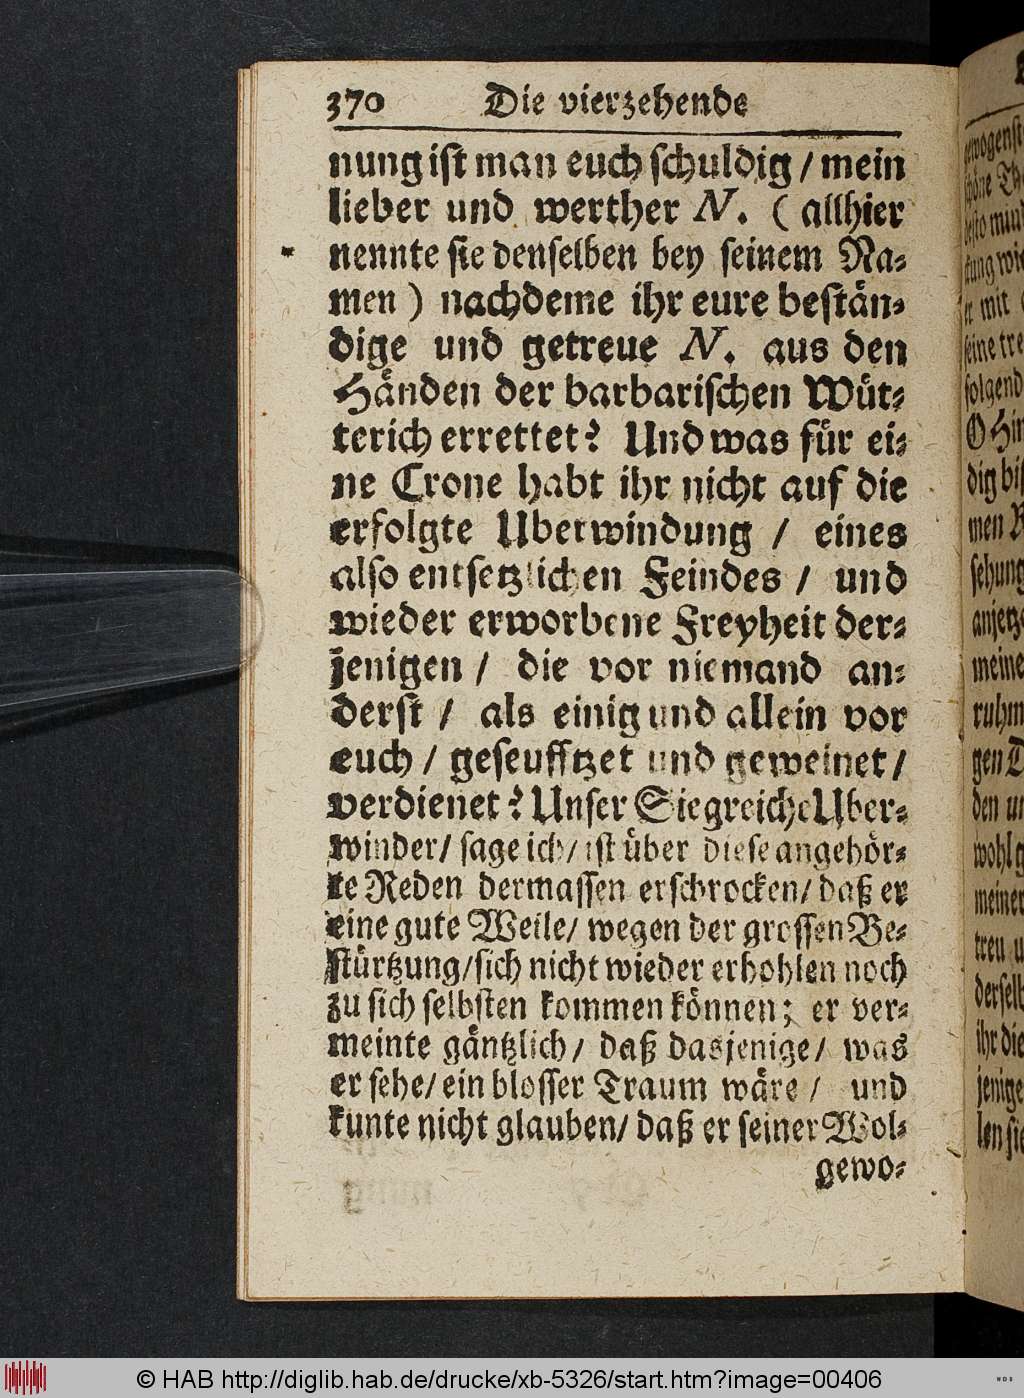 370 Die vierzehende
nung ist man euch schuldig / mein
lieber und werther N. ( allhier
nennte sie denselben bey seinem Na-
men ) nachdeme ihr eure bestän-
dige und getreue N. aus den
Händen der barbarischen Wüt-
terich errettet? Und was für ei-
ne Crone habt ihr nicht auf die
erfolgte Uberwindung / eines
also entsetzlichen Feindes / und
wieder erworbene Freyheit der-
jenigen / die vor niemand an-
derst / als einig und allein vor
euch / geseufftzet und geweinet /
verdienet? Unser Siegreiche Uber-
winder / sage ich / ist über diese angehör-
te Reden dermassen erschrocken / daß er
eine gute Weile / wegen der grossen Be-
stürtzung / sich nicht wieder erhohlen noch
zu sich selbsten kommen können; er ver-
meinte gäntzlich / daß dasjenige / was
er sehe / ein blosser Traum wäre / und
kunte nicht glauben / daß er seiner Wol-
gewo-
© HAB http://diglib.hab.de/drucke/xb-5326/start.htm?image=00406